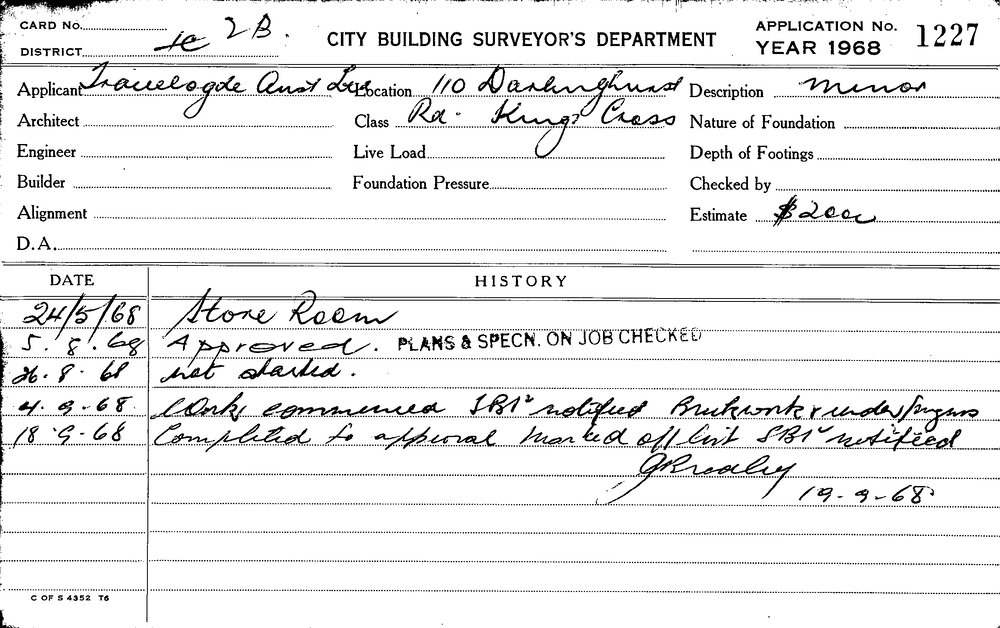 CARD No.
DISTRICT 1c 2B.
CITY BUILDING SURVEYOR'S DEPARTMENT
APPLICATION No. 1227
YEAR 1968
Applicant Travelogde Aust Location 110 Darlinghurst
Description minor
Architect
Class Rd. Kings Cross
Nature of Foundation
Engineer
Live Load
Depth of Footings
Builder
Foundation Pressure
Checked by
Alignment
Estimate $2000
D.A.
DATE
HISTORY
24/5/68 Store Room
5.8.68 Approved. PLANS & SPECN. ON JOB CHECKED
26.8.68 not started.
4.9.68. Work commenced notified Brickwork
18.9.68 Completed to approval marked off list notified
19.9.68
C OF S 4352 T6